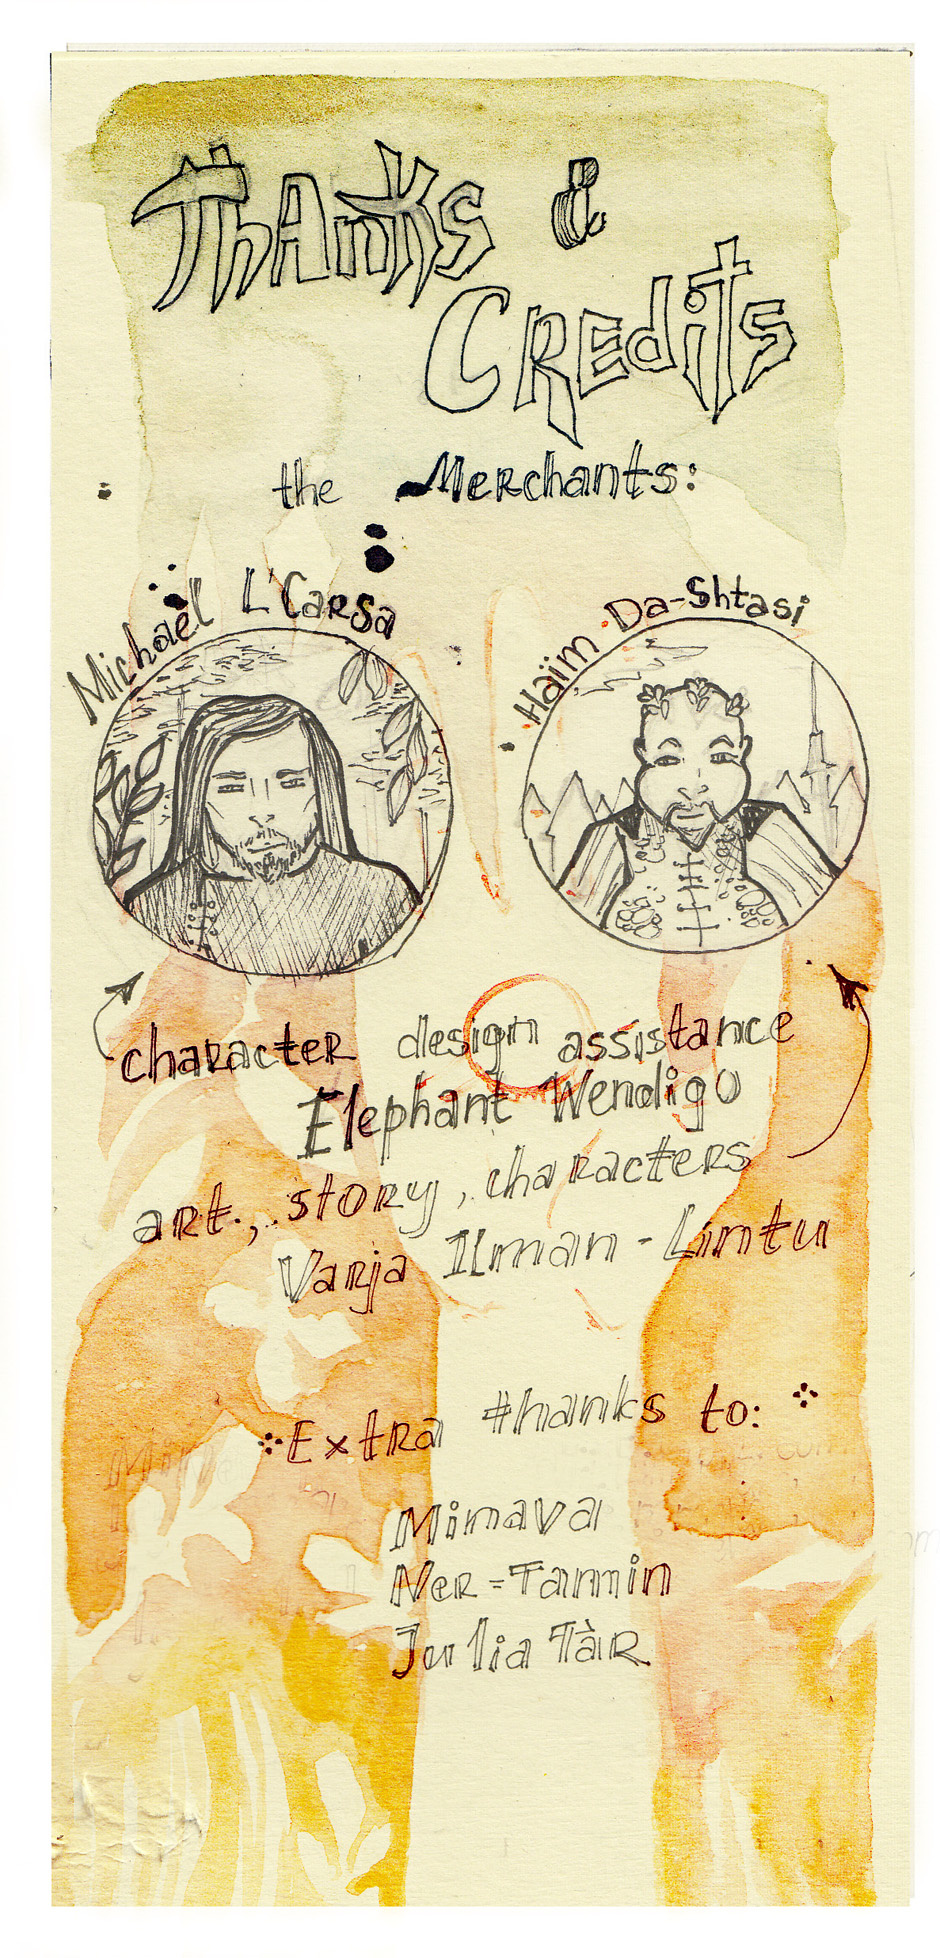 ThAnKs &
CREdits
the Merchants:
Michaël L'Carsa
Haïm Da-Shtasi
character design assistance
Elephant Wendigo
art, story, characters
Varja Ilman-Lintu
Extra thanks to:
Mimava
Ner=Tammin
Julia Tàr